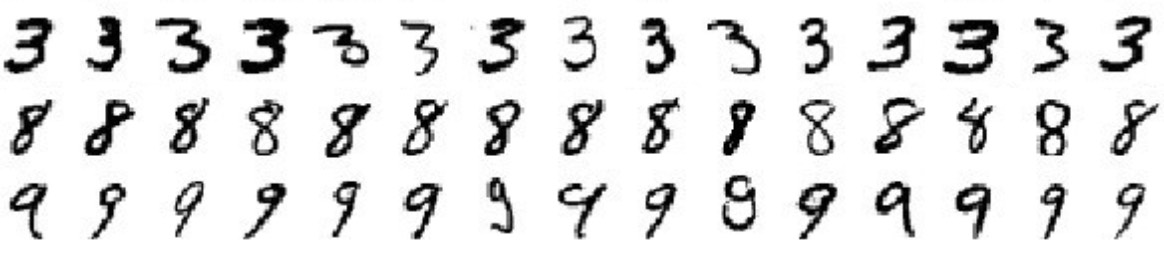 3 3 3 3 3 3 3 3 3 3 3 3 3 3 3
8 8 8 8 8 8 8 8 8 8 8 8 8 8 8
9 9 9 9 9 9 9 9 9 9 9 9 9 9 9